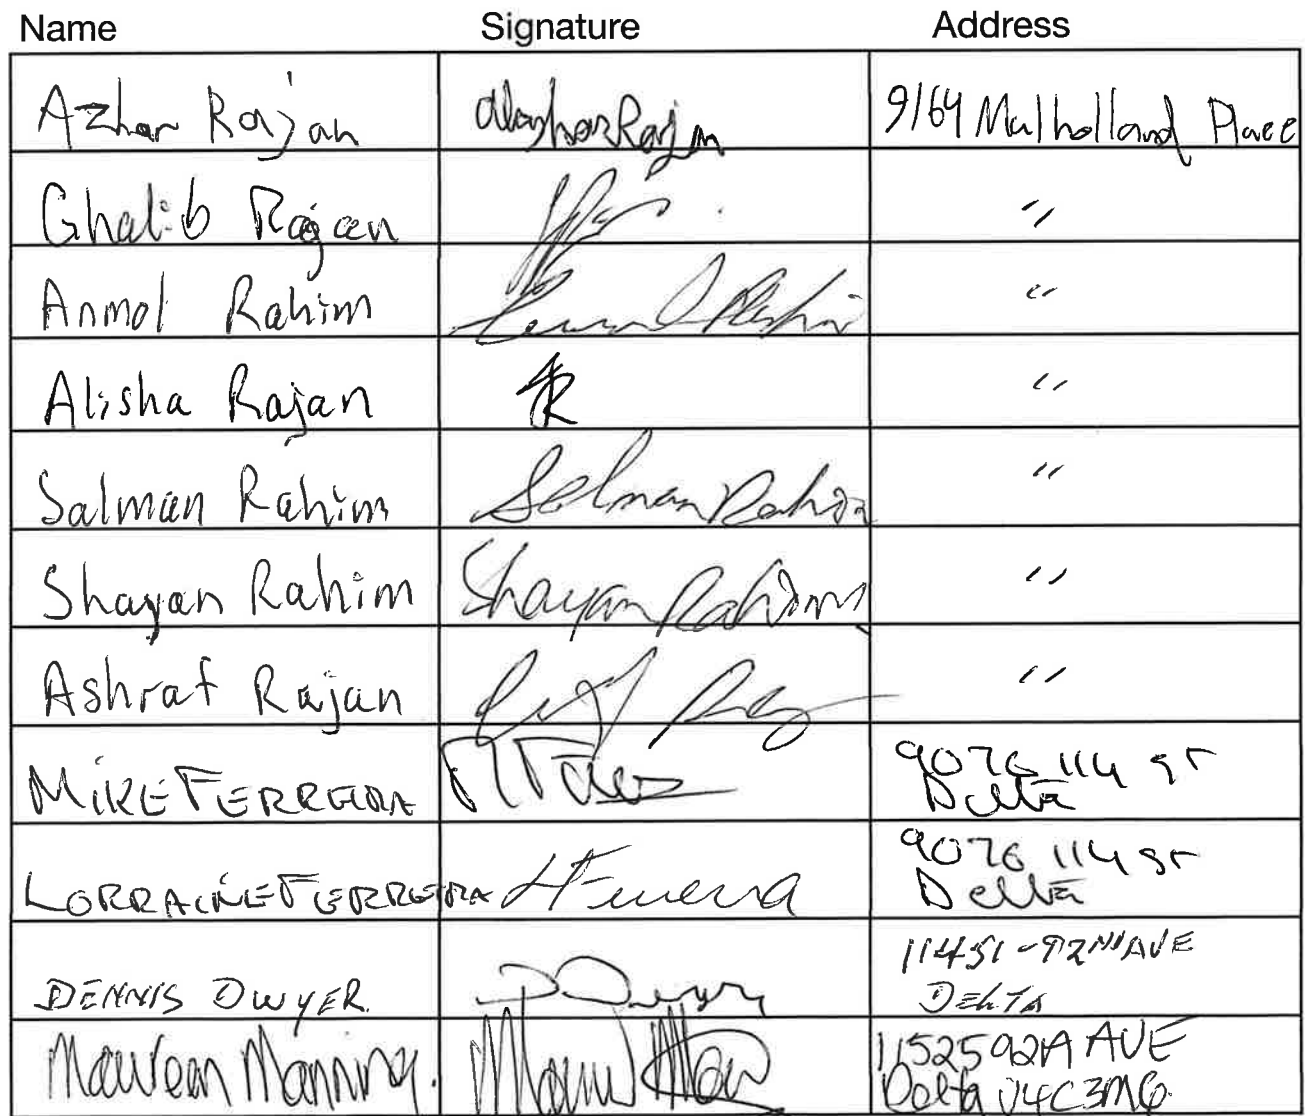 Name Signature Address
Azhar Rajan Azhar Rajan 9164 Mulholland Place
Ghalib Rajan "
Anmol Rahim "
Alisha Rajan AR "
Salman Rahim Salman Rahim "
Shayan Rahim Shayan Rahim "
Ashraf Rajan "
MIKE FERREIRA 9076 114 ST
Delta
LORRAINE FERREIRA LFerreira 9076 114 ST
Delta
DENNIS DWYER D Dwyer 11451-92ND AVE
DELTA
Maureen Manning. 11525 92A AVE
Delta V4C3M6